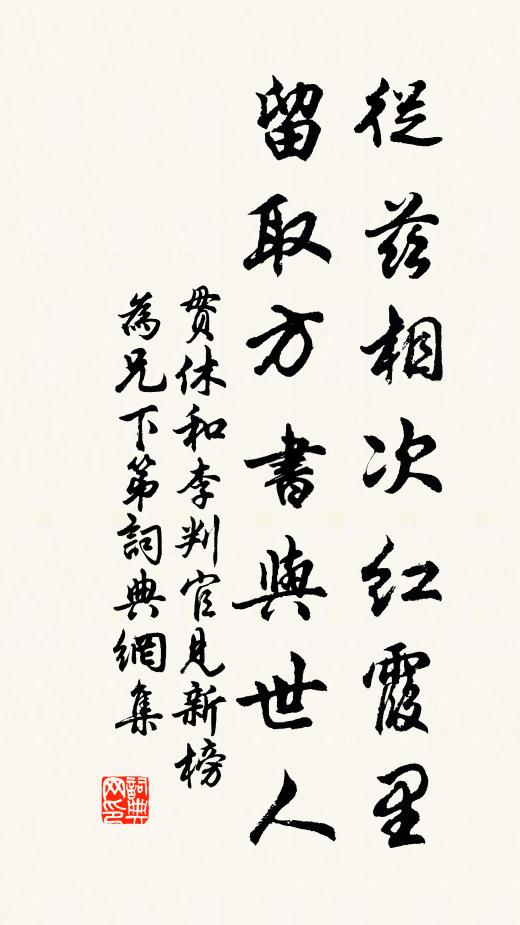 從茲相次紅霞里
留取方書與世人
貫休和李判官見新榜
為兄下第詞典網集
詞典網印